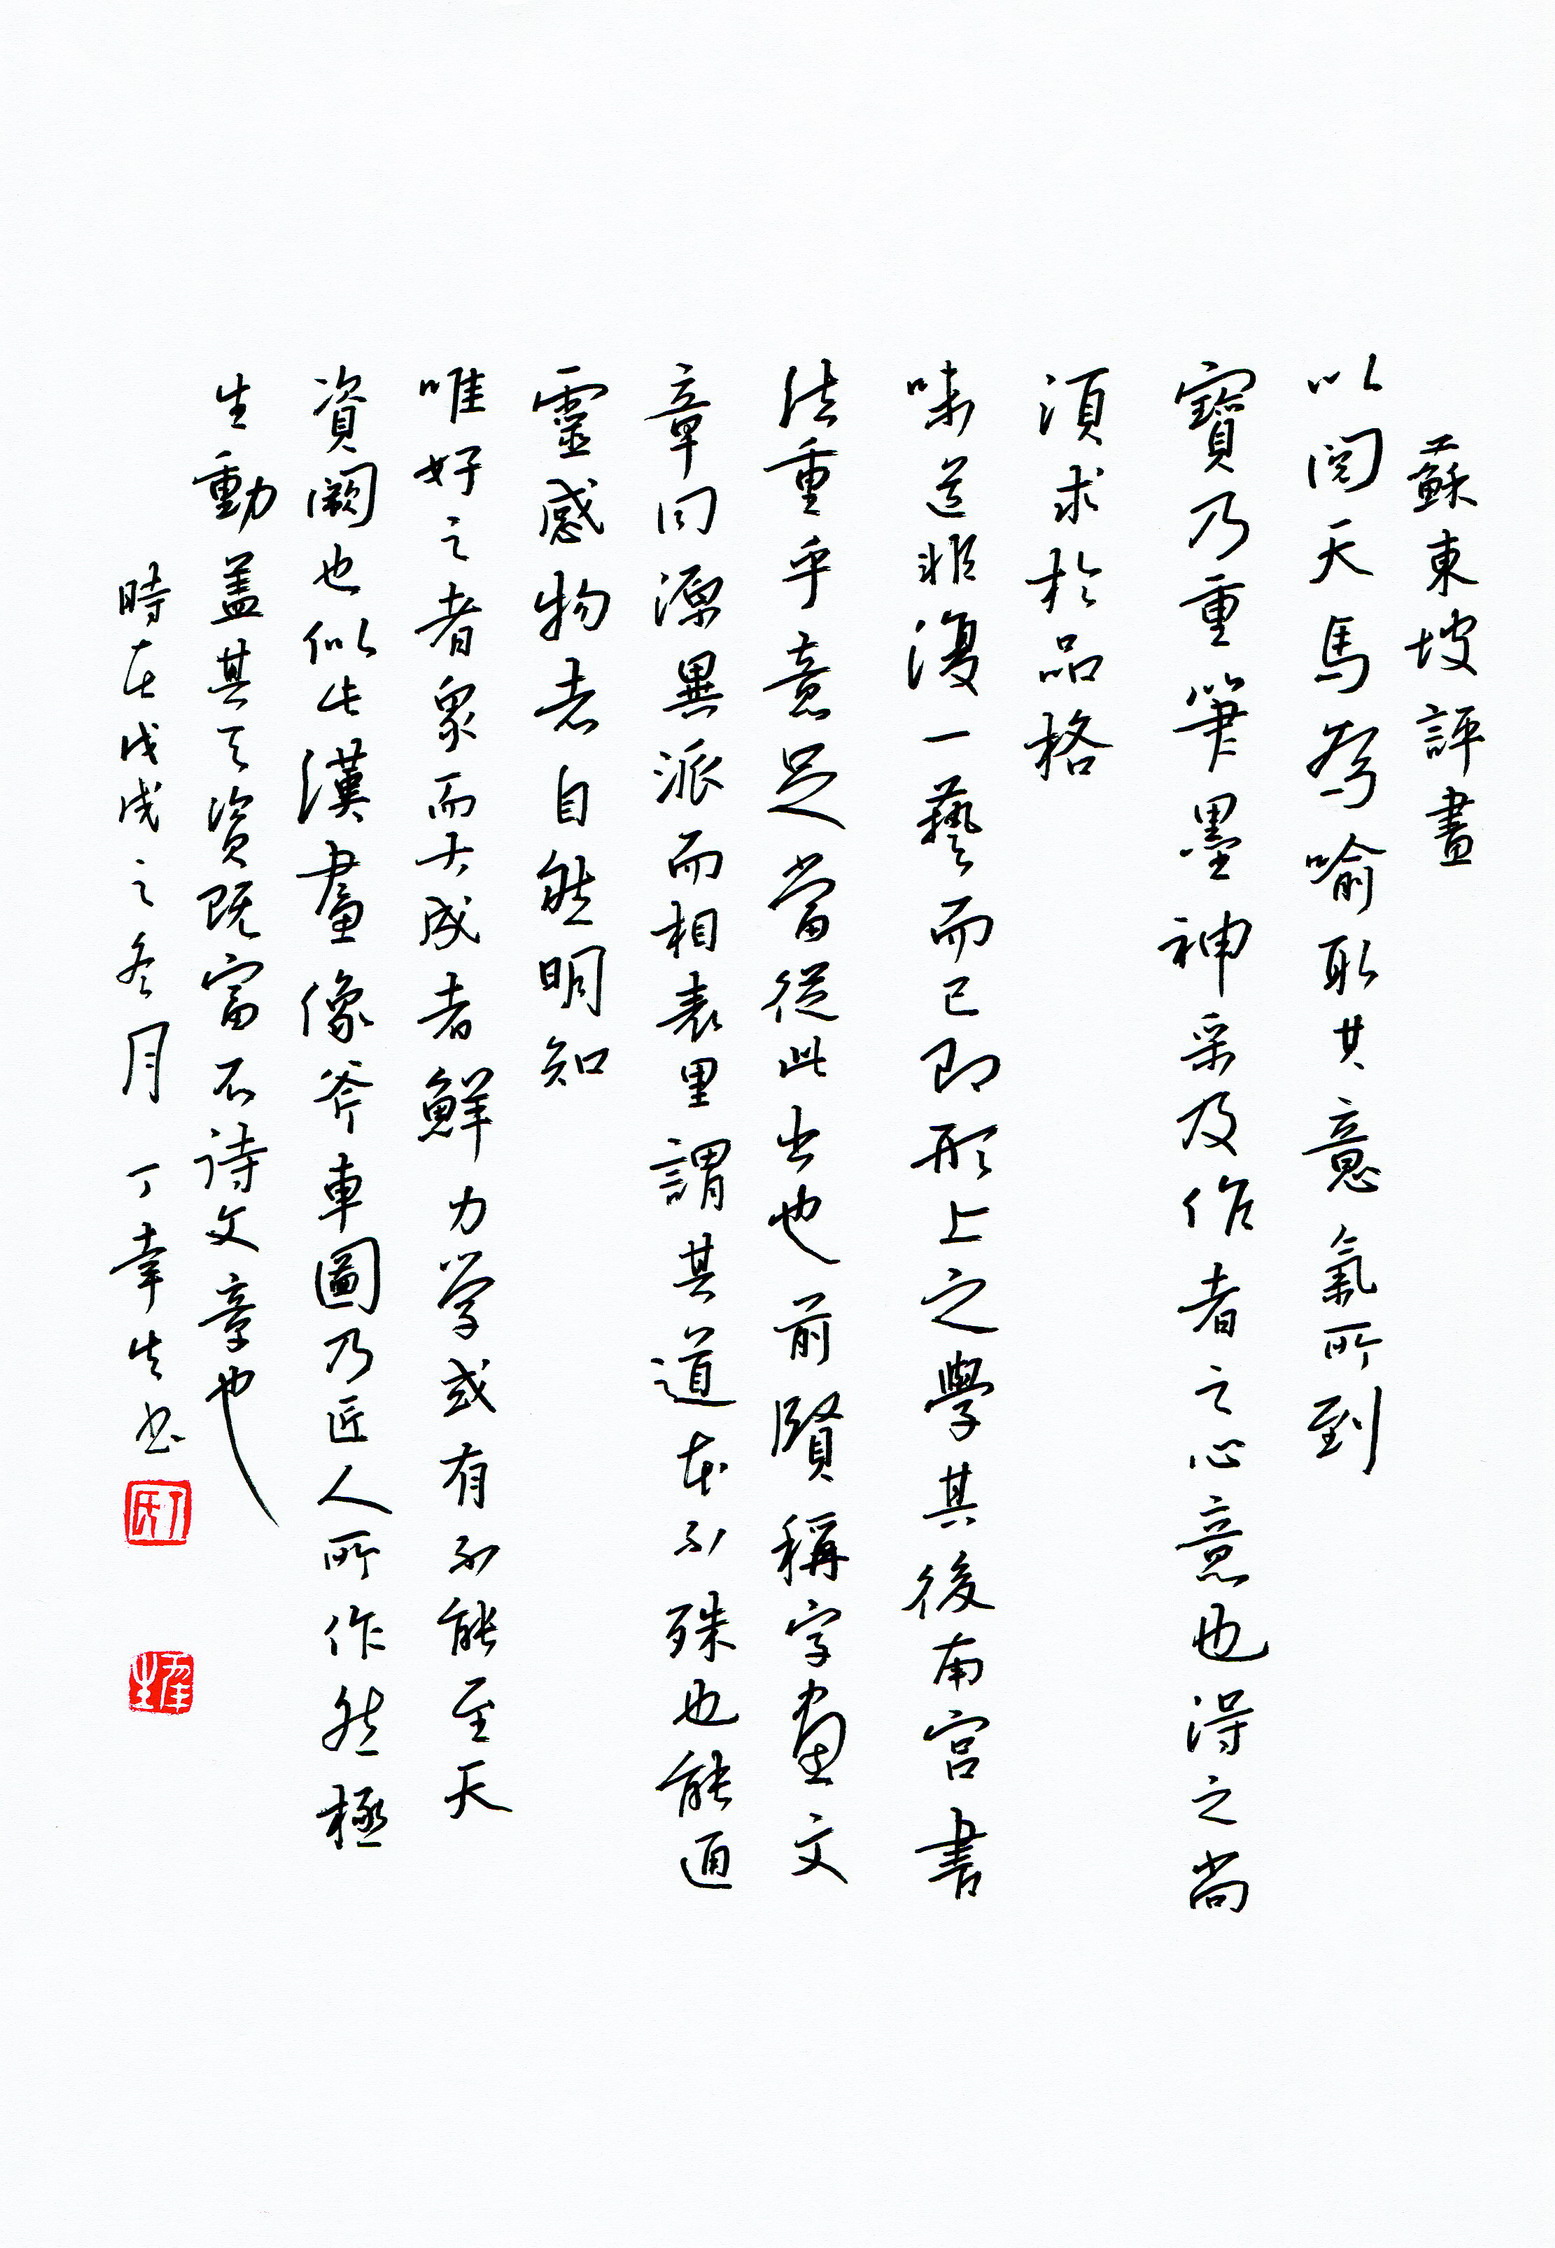 蘇東坡評畫
以閱天馬為喻取其意氣所到
寶乃重筆墨神采及作者之心意也得之尚
須求於品格
味道非復一藝而已即形上之學其後南宮書
法重乎意足當從此出也前賢稱字畫文
章同源異派而相表里謂其道本不殊也能通
靈感物者自然明知
唯好之者眾而大成者鮮力学或有不能至天
資闕也似此漢畫像斧車圖乃匠人所作然極
生動蓋其天資既富不詩文章也
時在戊戌之冬月丁幸生书
丁氏
幸生